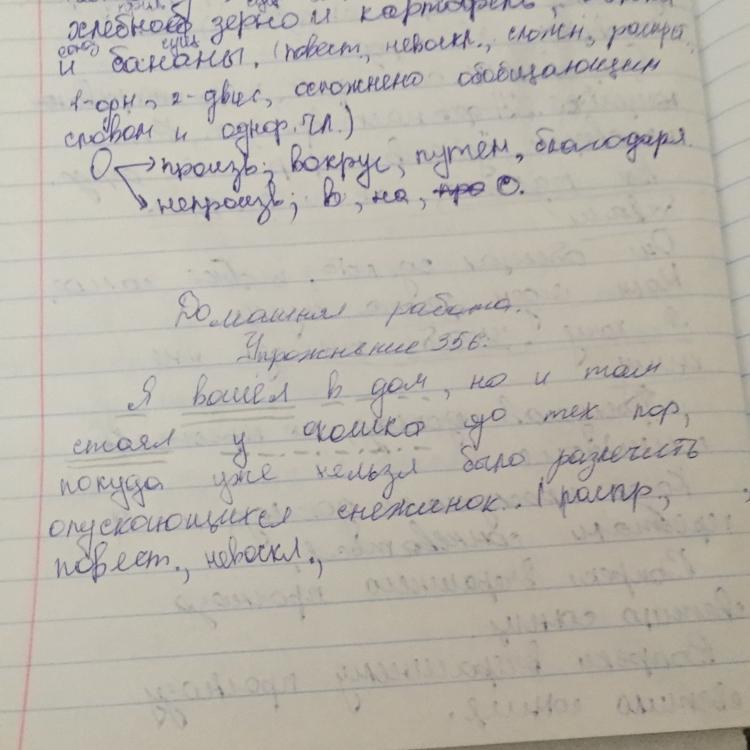 хлебное зерно и картофель,
союз сущ
и бананы. (повест., невоскл., сложн., распр.,
1-одн., 2-двус., осложнено обобщающим
словом и однор. чл.)
О → произв; вокруг, путём, благодаря.
непроизв; в, на, про О.
Домашняя работа.
Упражнение 356.
Я вошёл в дом, но и там
стоял у окошка до тех пор,
покуда уже нельзя было различить
опускающихся снежинок. (распр.,
повест., невоскл.,